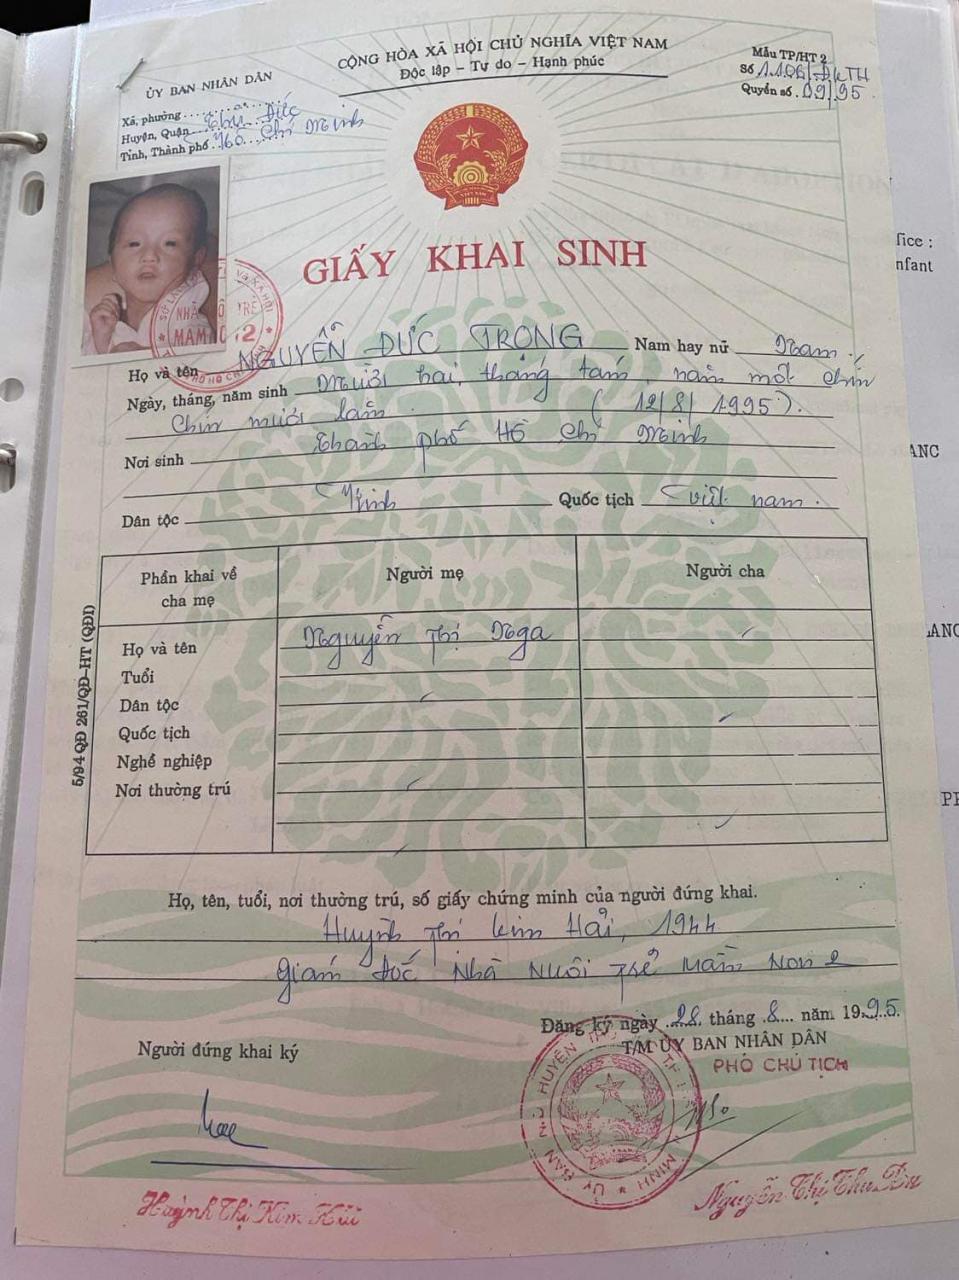 CỘNG HÒA XÃ HỘI CHỦ NGHĨA VIỆT NAM
Độc lập - Tự do - Hạnh phúc
ỦY BAN NHÂN DÂN
Xã, phường
Huyện, Quận Thủ Đức
Tỉnh, Thành phố Hồ Chí Minh
Mẫu TP/HT 2
Số 1.106/ĐKTH
Quyển số 09/95
GIẤY KHAI SINH
Họ và tên NGUYỄN ĐỨC TRỌNG Nam hay nữ Nam.
Ngày, tháng, năm sinh Mười hai, tháng tám, năm một chín
chín mươi lăm (12/8/1995).
Nơi sinh Thành phố Hồ Chí Minh
Dân tộc Kinh Quốc tịch Việt nam.
Phần khai về cha mẹ
Người mẹ
Người cha
Họ và tên Nguyễn Thị Nga
Tuổi
Dân tộc
Quốc tịch
Nghề nghiệp
Nơi thường trú
5/94 QĐ 261/QĐ-HT (QĐI)
Họ, tên, tuổi, nơi thường trú, số giấy chứng minh của người đứng khai.
Huỳnh Thị Kim Hải, 1944
Giám Đốc Nhà Nuôi Trẻ Mầm Non 2
Đăng ký ngày 28 tháng 8 năm 1995.
Người đứng khai ký
T/M ỦY BAN NHÂN DÂN
PHÓ CHỦ TỊCH
Huỳnh Thị Kim Hải
Nguyễn Thị Thu
fice :
nfant
ANC
LANC